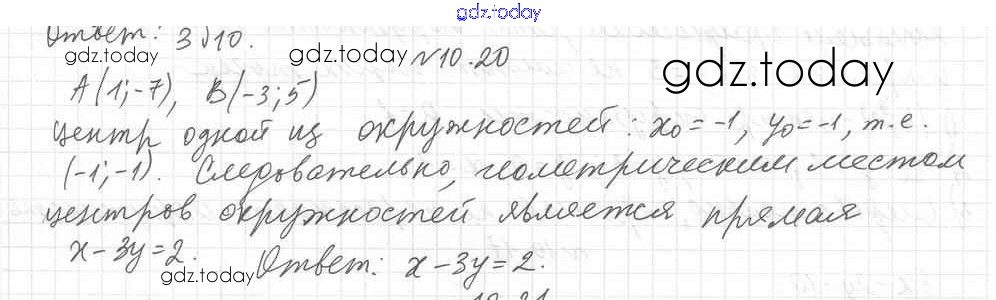 gdz.today
Ответ: 3√10.
gdz.today gdz.today №10.20 gdz.today
A(1;-7), B(-3;5)
Центр одной из окружностей: x₀=-1, y₀=-1, т.е.
(-1;-1). Следовательно, геометрическим местом
центров окружностей является прямая
x-3y=2. Ответ: x-3y=2.
gdz.today
10.21